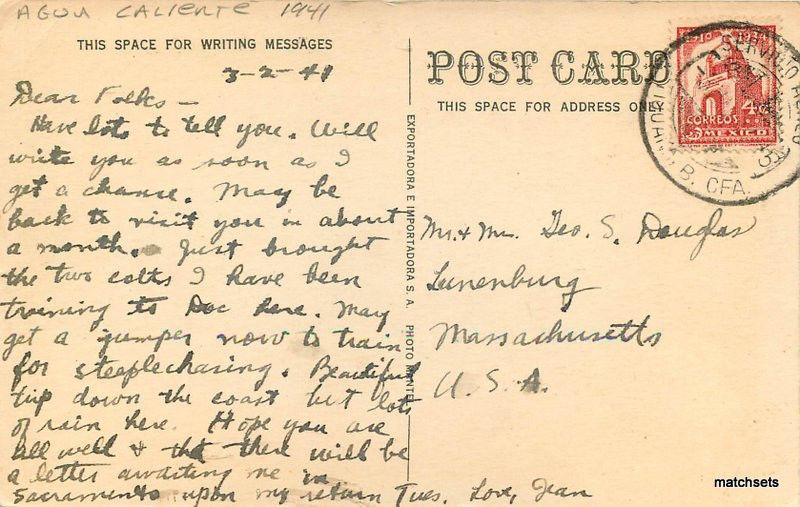 AGUA CALIENTE 1941
THIS SPACE FOR WRITING MESSAGES
3-2-41
Dear Folks —
Have lots to tell you. Will
write you as soon as I
get a chance. May be
back to visit you in about
a month. Just brought
the two colts I have been
training to Doc here. May
get a jumper now to train
for steeplechasing. Beautiful
trip down the coast but lots
of rain here. Hope you are
all well & that there will be
a letter awaiting me in
Sacramento upon my return Tues. Love, Jean
EXPORTADORA E IMPORTADORA S. A. PHOTO
POST CARD
THIS SPACE FOR ADDRESS ONLY
Mr. & Mrs. Geo. S. Douglas
Lunenburg
Massachusetts
U. S. A.
CORREOS
MEXICO
SERVICIO
B. CFA.
matchsets